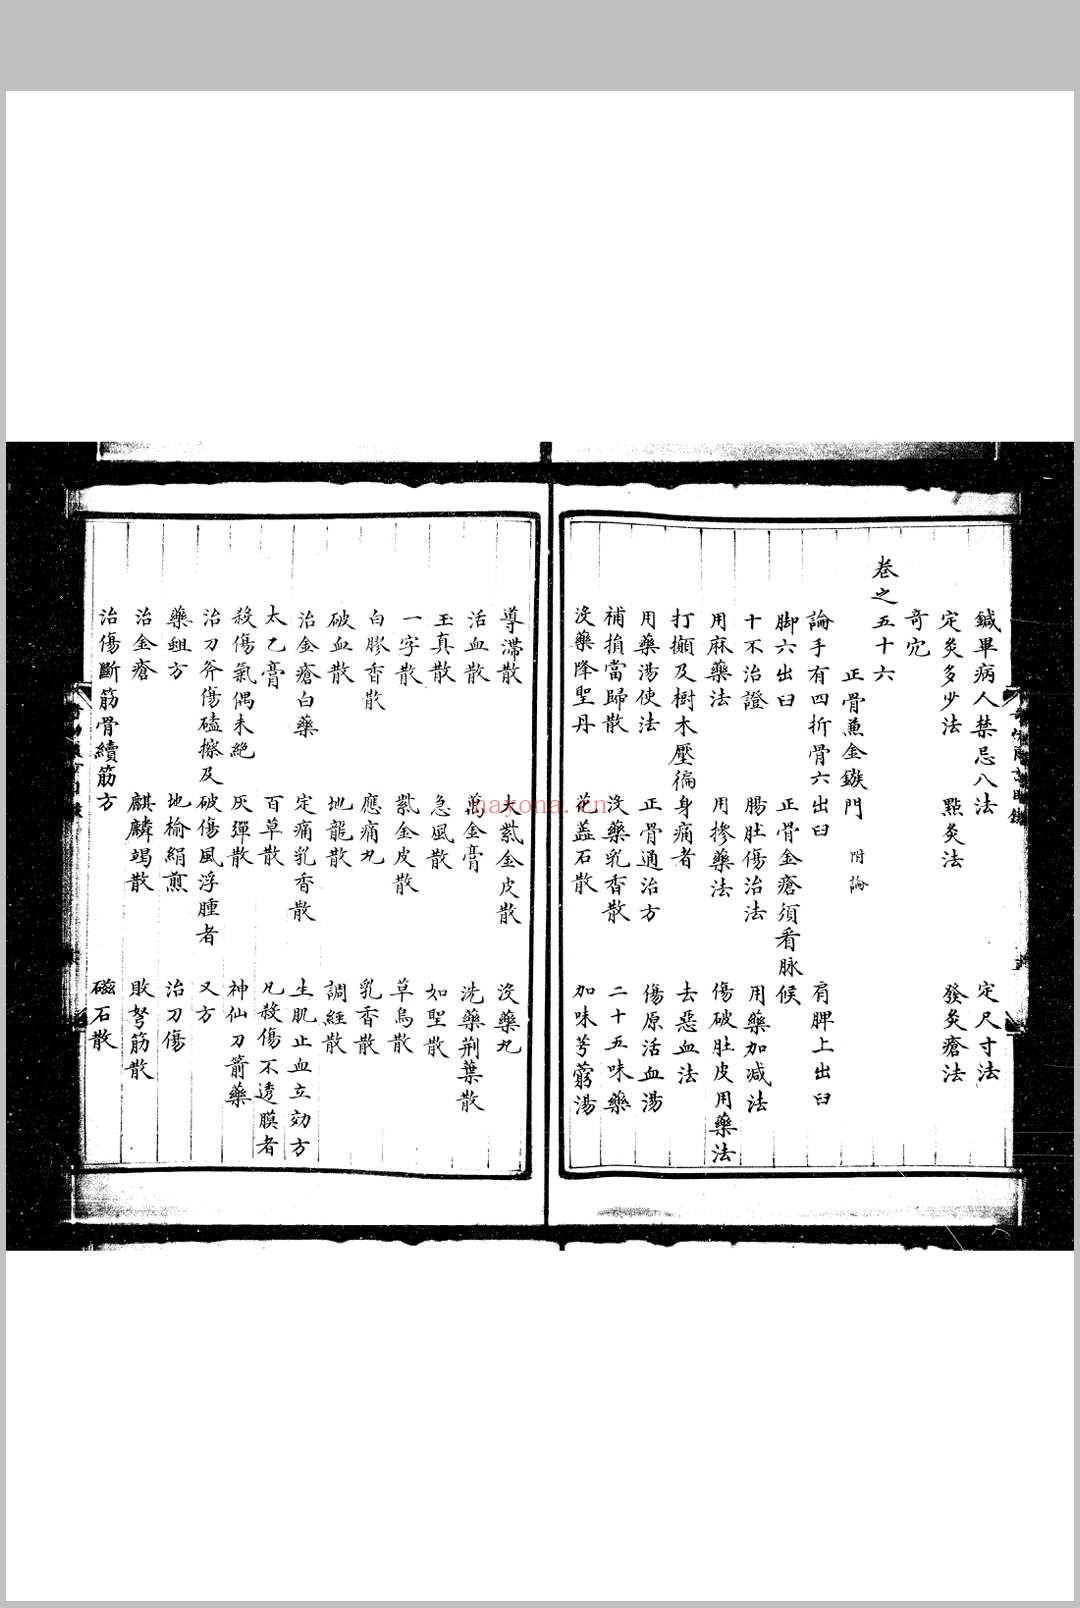 鍼畢病人禁忌八法 定尺寸法
定灸多少法 點灸法 發灸瘡法
竒穴
卷之五十六
正骨兼金鏃門 附論
論手有四折骨六出臼 肩脾上出臼
脚六出臼 正骨金瘡須看脉候
十不治證 腸肚傷治法 用藥加减法
用麻藥法 用摻藥法 傷破肚皮用藥法
打攧及樹木壓徧身痛者 去惡血法
用藥湯使法 正骨通治方 傷原活血湯
補損當歸散 没藥乳香散 二十五味藥
没藥降聖丹 花蕊石散 加味芎藭湯
導滯散 大紫金皮散 没藥丸
活血散 萬金膏 洗藥荆葉散
玉真散 急風散 如聖散
一字散 紫金皮散 草烏散
白膠香散 應痛丸 乳香散
破血散 地龍散 調經散
治金瘡白藥 定痛乳香散 生肌止血立効方
太乙膏 百草散 凡殺傷不透膜者
殺傷氣偶未絶 灰彈散 神仙刀箭藥
治刀斧傷磕擦及破傷風浮腫者 又方
藥蛆方 地榆絹煎 治刀傷
治金瘡 麒麟竭散 敗弩筋散
治傷斷筋骨續筋方 磁石散
nayona.cn